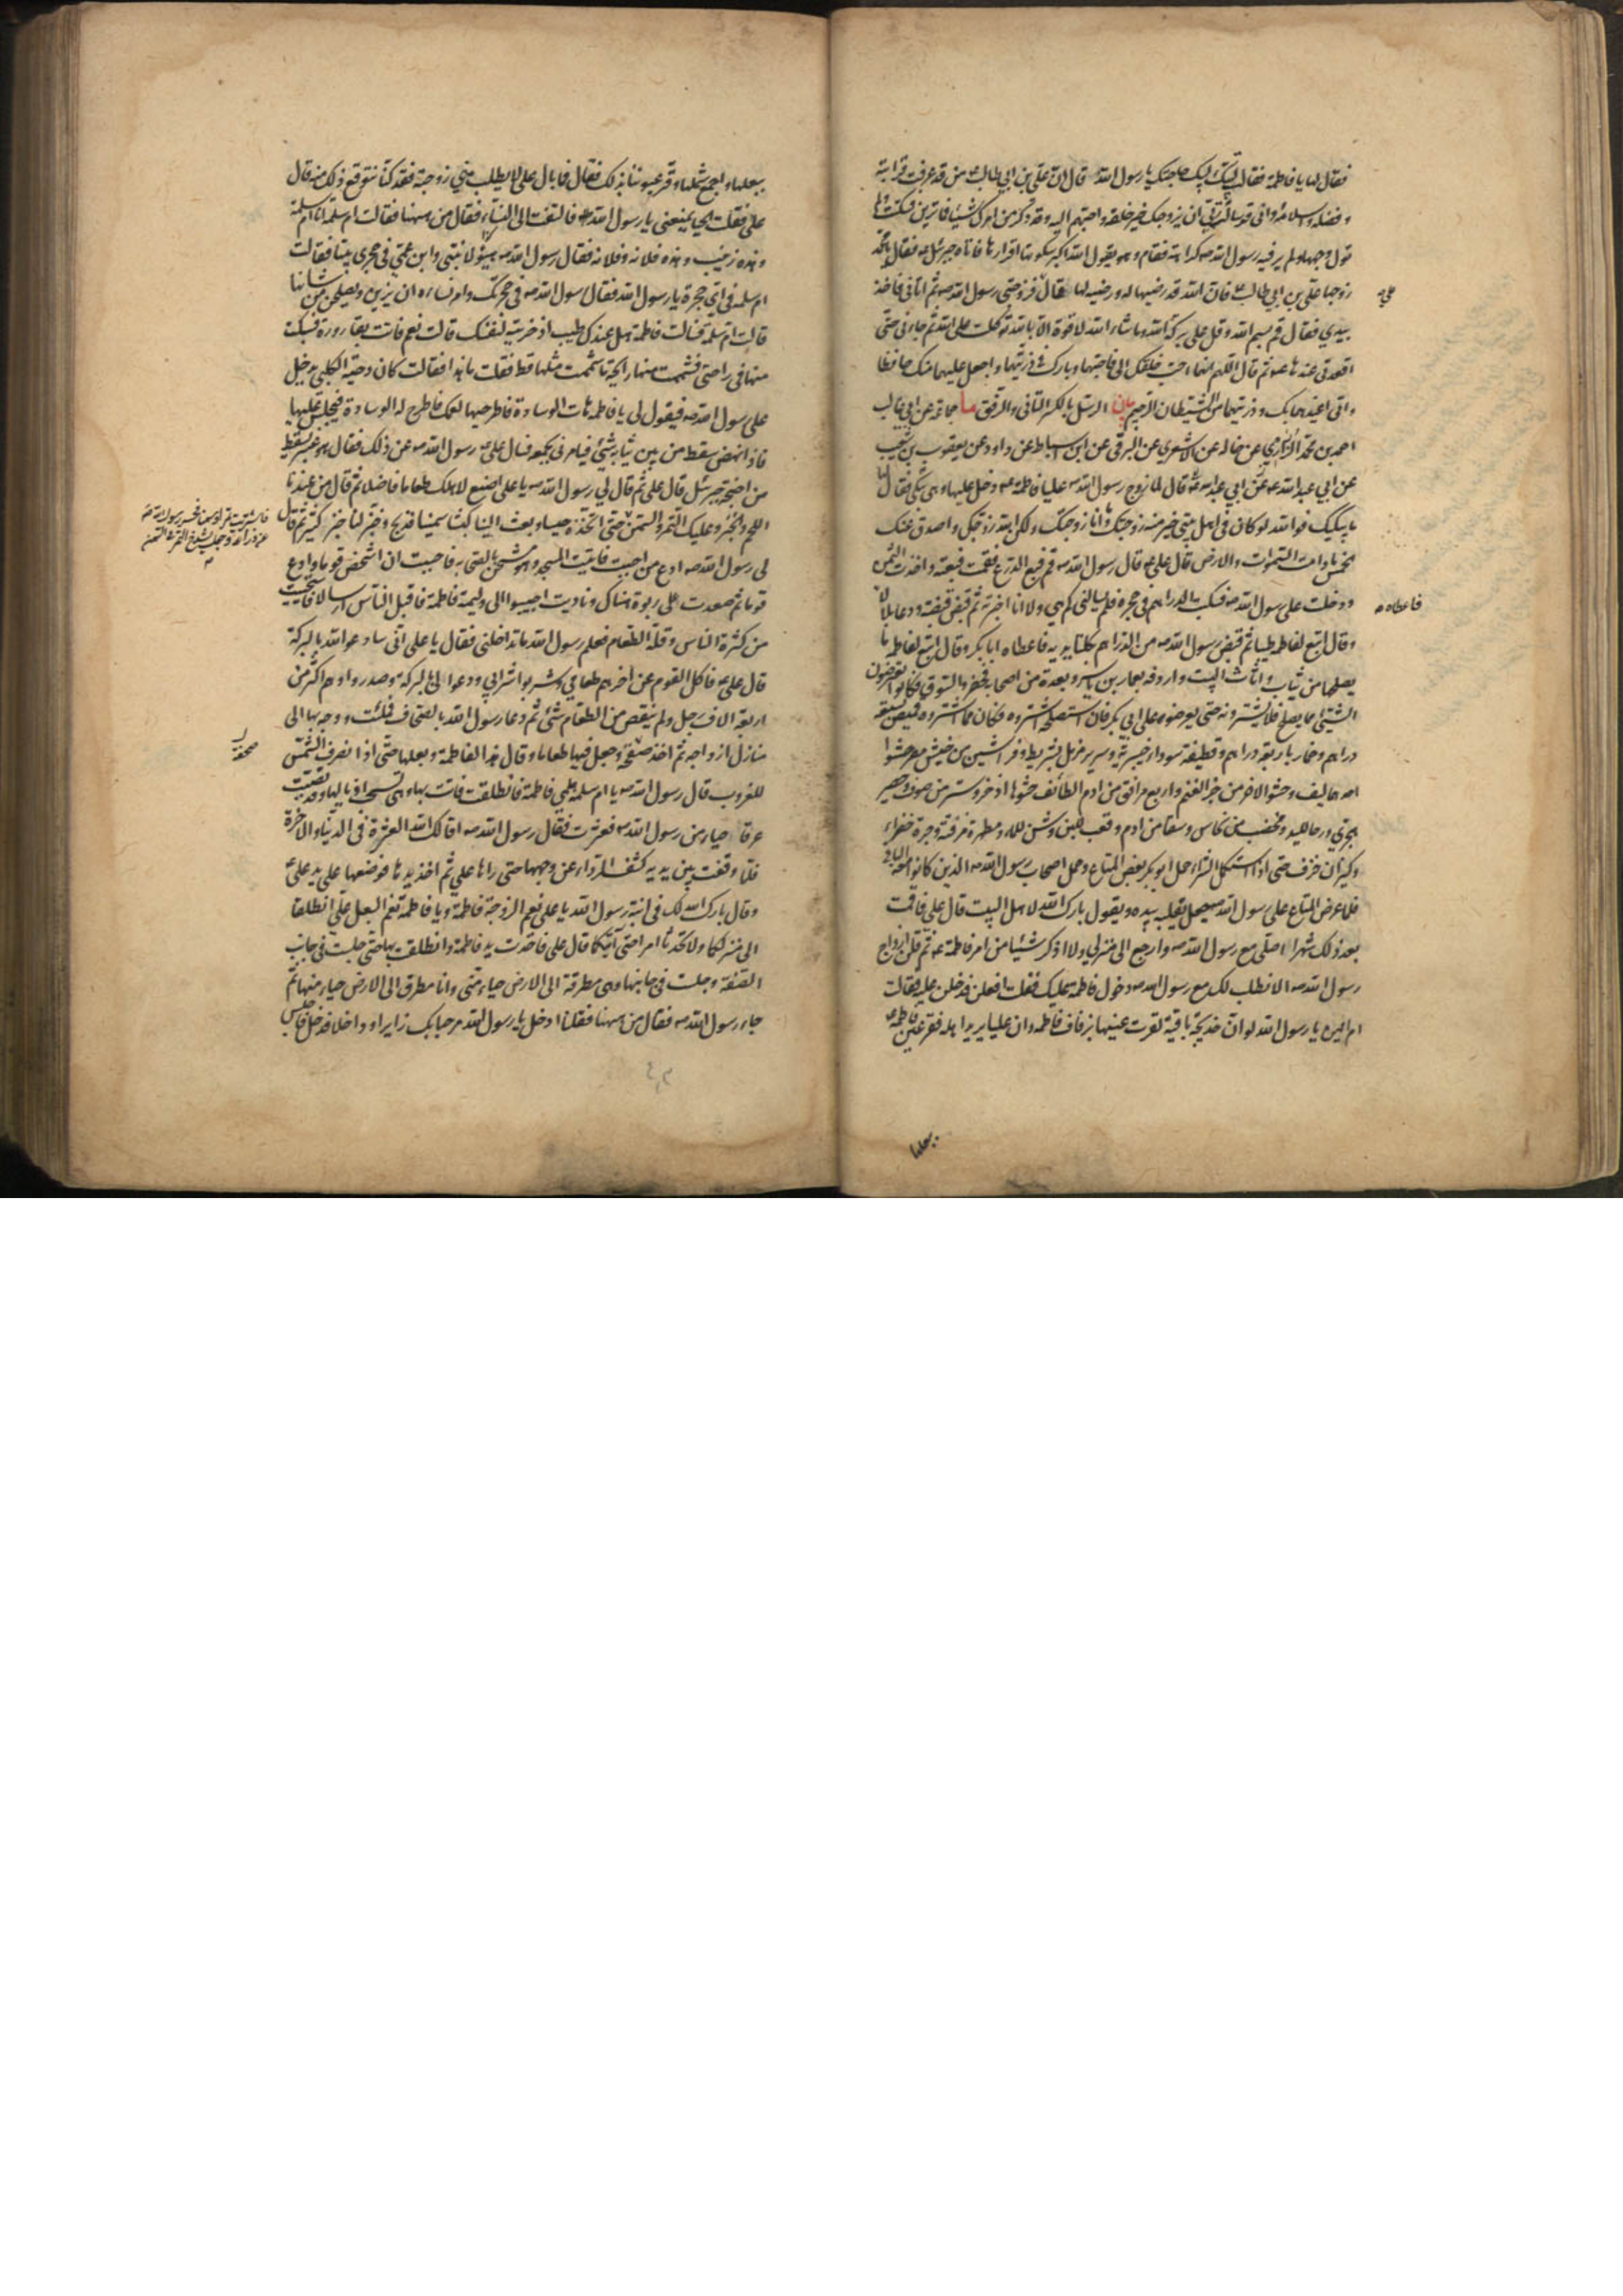 فقال لها يا فاطمة فقالت لبيك لبيك حاجتك يا رسول الله قال ان علي بن ابي طالب من قد عرفت قرابته
وفضله واسلامه واني قد سالت ربي ان يزوجك خير خلقه واحبهم اليه وقد ذكر من امرك شيئا فما ترين فسكتت ولم
تول وجهها ولم ير فيه رسول الله كراهة فقام وهو يقول الله اكبر سكوتها اقرارها فاتاه جبرئيل فقال يا محمد
زوجها علي بن ابي طالب فان الله قد رضيها له ورضيه لها قال فزوجني رسول الله ثم اتاني فاخذ
علي
بيدي فقال قم بسم الله وقل على بركة الله وما شاء الله لا قوة الا بالله توكلت على الله ثم جاءني حتى
اقعدني عندها ثم قال اللهم انهما احب خلقك الي فاحبهما وبارك في ذريتهما واجعل عليهما منك حافظا
واني اعيذهما بك وذريتهما من الشيطان الرجيم بيان الرسل بالكسر التاني والرفق ما جماعة عن ابي غالب
احمد بن محمد الزراري عن خاله عن الاشعري عن البرقي عن ابن اسباط عن داود عن يعقوب بن شعيب
عن ابي عبد الله قال لما زوج رسول الله عليا فاطمة دخل عليها وهي تبكي فقال لها
ما يبكيك فوالله لو كان في اهل بيتي خير منه زوجتك وما انا زوجتك ولكن الله زوجك واصدق عنك
الخمس ما دامت السموات والارض قال علي قال رسول الله قم فبع الدرع فقمت فبعته واخذت الثمن
ودخلت على رسول الله فسكبت الدراهم في حجره فلم يسالني كم هي ولا انا اخبرته ثم قبض قبضة ودعا بلالا
فاعطاه
وقال ابتع لفاطمة طيبا ثم قبض رسول الله من الدراهم بكلتا يديه فاعطاه ابا بكر وقال ابتع لفاطمة ما
يصلحها من ثياب واثاث البيت واردفه بعمار بن ياسر وبعدة من اصحابه فحضروا السوق فكانوا يعرضون
الشيء مما يصلح فلا يشترونه حتى يعرضوه على ابي بكر فان استصلحه اشتروه فكان مما اشتروه قميص بسبعة
دراهم وخمار باربعة دراهم وقطيفة سوداء خيبرية وسرير مزمل بشريط وفراشين من خيش مصر حشو
احدهما ليف وحشو الاخر من جز الغنم واربع مرافق من ادم الطائف حشوها اذخر وستر من صوف وحصير
هجري ورحا لليد ومخضب من نحاس وسقا من ادم وقعب للبن وشن للماء ومطهرة مزفتة وجرة خضراء
وكيزان خزف حتى اذا استكمل الشراء حمل ابو بكر بعض المتاع وحمل اصحاب رسول الله الذين كانوا معه الباقي
فلما عرض المتاع على رسول الله جعل يقلبه بيده ويقول بارك الله لاهل البيت قال علي فاقمت
بعد ذلك شهرا اصلي مع رسول الله وارجع الى منزلي ولا اذكر شيئا من امر فاطمة ثم قلن ازواج
رسول الله الا نطلب لك مع رسول الله دخول فاطمة عليك فقلت افعلن فدخلن عليه فقالت
ام ايمن يا رسول الله لو ان خديجة باقية لقرت عينها بزفاف فاطمة وان عليا يريد اهله فقر عين فاطمة
ببعلها
ببعلها واجمع شملها وقر عيوننا بذلك فقال فما بال علي لا يطلب مني زوجته فقد كنا نتوقع ذلك منه قال
علي فقلت الحيا يمنعني يا رسول الله فالتفت الى النساء فقال من ههنا فقالت ام سلمة انا ام سلمة
وهذه زينب وهذه فلانة وفلانة فقال رسول الله هيئوا لابنتي وابن عمي في حجري بيتا فقالت
ام سلمة في اي حجرة يا رسول الله فقال رسول الله في حجرتك وامر نساءه ان يزين ويصلحن من شانها
قالت ام سلمة فسالت فاطمة هل عندك طيب ادخرتيه لنفسك قالت نعم فاتت بقارورة فسكبت
منها في راحتي فشممت منها رائحة ما شممت مثلها قط فقلت ما هذا فقالت كان دحية الكلبي يدخل
على رسول الله فيقول لي يا فاطمة هات الوسادة فاطرحيها لعمك فاطرح له الوسادة فيجلس عليها
فاذا نهض سقط من بين ثيابه شيء فيامرني بجمعه فسال علي رسول الله عن ذلك فقال هو عنبر يسقط
من اجنحة جبرئيل قال علي ثم قال لي رسول الله يا علي اصنع لاهلك طعاما فاضلا ثم قال من عندنا
اللحم والخبز وعليك التمر والسمن حتى اتخذه حيسا وبعث الينا كبشا سمينا فذبح وخبز لنا خبز كثير ثم قال
فاشتريت تمرا وسمنا فحسر رسول الله
عن ذراعه وجعل يشدخ التمر في السمن
لي رسول الله ادع من احببت فاتيت المسجد وهو مشحن بالصحابة فاحييت ان اشخص قوما وادع
قوما ثم صعدت على ربوة هناك وناديت اجيبوا الى وليمة فاطمة فاقبل الناس ارسالا فاستحييت
من كثرة الناس وقلة الطعام فعلم رسول الله ما تداخلني فقال يا علي اني سادعو الله بالبركة
قال علي فاكل القوم عن اخرهم طعامي وشربوا شرابي ودعوا لي بالبركة وصدروا وهم اكثر من
اربعة الاف رجل ولم ينقص من الطعام شيء ثم دعا رسول الله بالصحاف فملئت ووجه بها الى
منازل ازواجه ثم اخذ صحفة وجعل فيها طعاما وقال هذا لفاطمة وبعلها حتى اذا انصرفت الشمس
صحفة
للغروب قال رسول الله يا ام سلمة هلمي فاطمة فانطلقت فاتت بها وهي تسحب اذيالها وقد تصببت
عرقا حياء من رسول الله فعثرت فقال رسول الله اقالك الله العثرة في الدنيا والاخرة
فلما وقفت بين يديه كشف الرداء عن وجهها حتى راها علي ثم اخذ يدها فوضعها على يد علي
وقال بارك الله لك في ابنة رسول الله يا علي نعم الزوجة فاطمة ويا فاطمة نعم البعل علي انطلقا
الى منزلكما ولا تحدثا امرا حتى آتيكما قال علي فاخذت بيد فاطمة وانطلقت بها حتى جلست في جانب
الصفة وجلست في جانبها وهي مطرقة الى الارض حياء مني وانا مطرق الى الارض حياء منها ثم
جاء رسول الله فقال من ههنا فقلنا ادخل يا رسول الله مرحبا بك زايرا وداخلا فدخل فاجلس